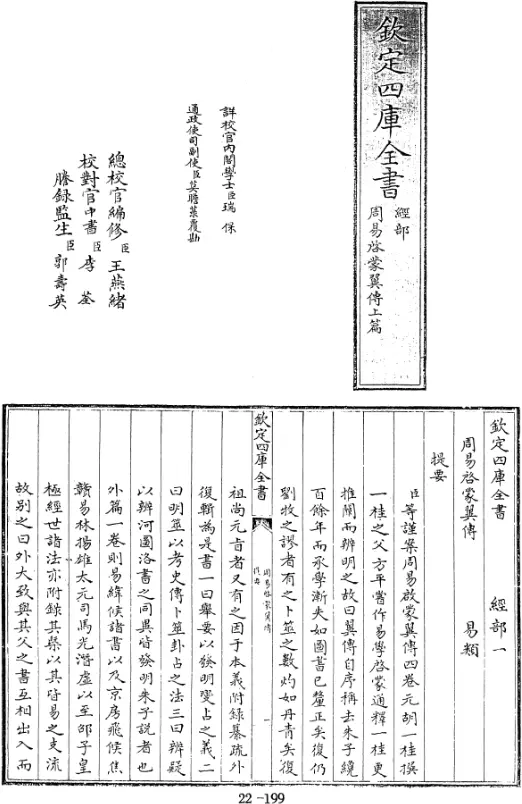 欽定四庫全書
經部
周易啓蒙翼傳上篇
詳校官內閣學士臣瑞保
通政使司副使臣莫瞻菉覆勘
總校官編修臣王燕緒
校對官中書臣李荃
謄錄監生臣郭壽英
欽定四庫全書 經部一
周易啓蒙翼傳 易類
提要
臣等謹案周易啟蒙翼傳四卷元胡一桂撰
一桂之父方平嘗作易學啓蒙通釋一桂更
推闡而辨明之故曰翼傳自序稱去朱子纔
百餘年而承學漸失如圖書已釐正矣復仍
劉牧之謬者有之卜筮之數灼如丹青矣復
欽定四庫全書
周易啓蒙翼傳
提要
祖尚元旨者又有之因于本義附錄纂疏外
復輯為是書一曰舉要以發明變占之義二
曰明筮以考史傳卜筮卦占之法三曰辨疑
以辨河圖洛書之同異皆發明朱子說者也
外篇一卷則易緯候諸書以及京房飛候焦
贛易林揚雄太元司馬光潛虛以至邵子皇
極經世諸法亦附錄其槩以其皆易之支流
故別之曰外大致與其父之書互相出入而
22-199